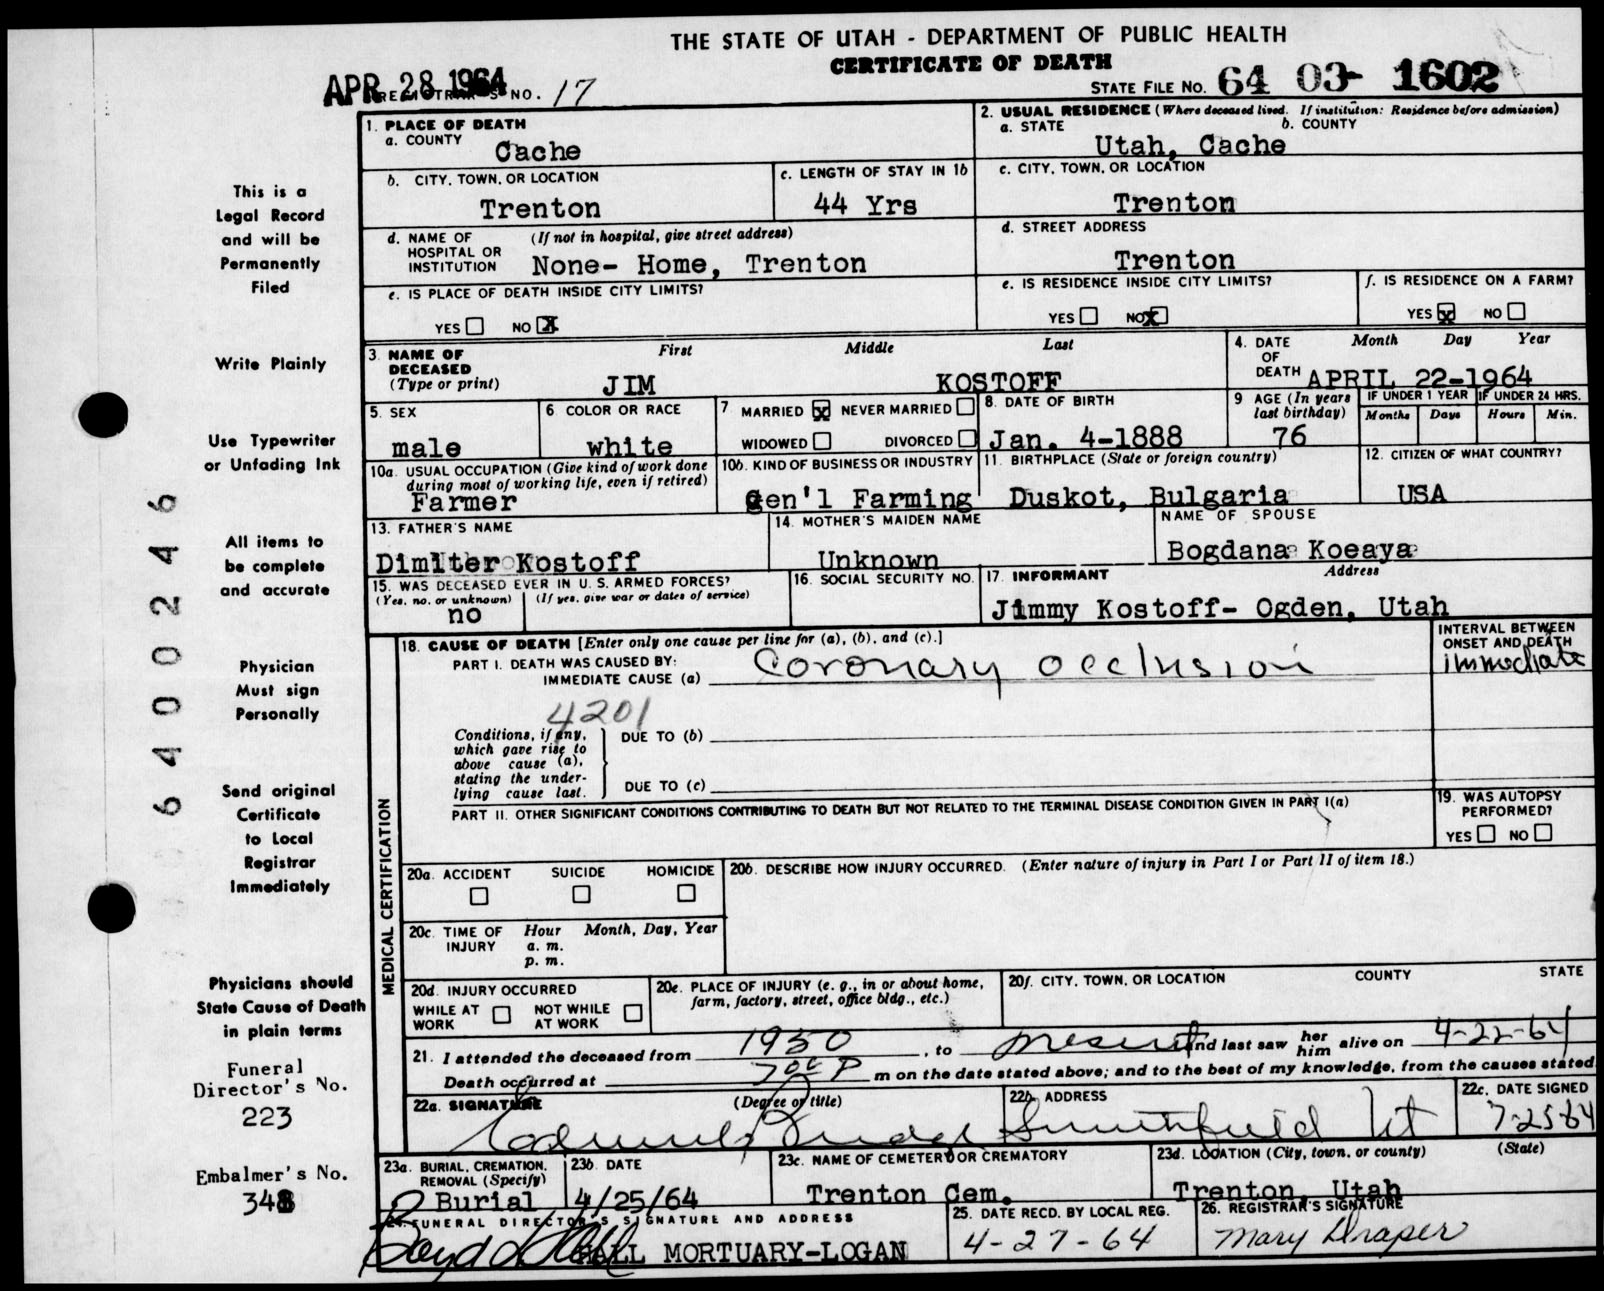 THE STATE OF UTAH - DEPARTMENT OF PUBLIC HEALTH
CERTIFICATE OF DEATH
APR 28 1964
REGISTRAR'S NO. 17
STATE FILE NO. 64 03- 1602
This is a
Legal Record
and will be
Permanently
Filed
Write Plainly
Use Typewriter
or Unfading Ink
All items to
be complete
and accurate
Physician
Must sign
Personally
Send original
Certificate
to Local
Registrar
Immediately
Physicians should
State Cause of Death
in plain terms
Funeral
Director's No.
223
Embalmer's No.
348
6400246
1. PLACE OF DEATH
a. COUNTY
Cache
2. USUAL RESIDENCE (Where deceased lived. If institution: Residence before admission)
a. STATE b. COUNTY
Utah, Cache
b. CITY, TOWN, OR LOCATION
Trenton
c. LENGTH OF STAY IN 1b
44 Yrs
c. CITY, TOWN, OR LOCATION
Trenton
d. NAME OF HOSPITAL OR INSTITUTION (If not in hospital, give street address)
None- Home, Trenton
d. STREET ADDRESS
Trenton
e. IS PLACE OF DEATH INSIDE CITY LIMITS?
YES NO X
e. IS RESIDENCE INSIDE CITY LIMITS?
YES NO X
f. IS RESIDENCE ON A FARM?
YES X NO
3. NAME OF DECEASED (Type or print)
First Middle Last
JIM KOSTOFF
4. DATE OF DEATH Month Day Year
APRIL 22-1964
5. SEX
male
6. COLOR OR RACE
white
7 MARRIED X NEVER MARRIED
WIDOWED DIVORCED
8. DATE OF BIRTH
Jan. 4-1888
9 AGE (In years last birthday)
76
IF UNDER 1 YEAR
Months Days
IF UNDER 24 HRS.
Hours Min.
10a. USUAL OCCUPATION (Give kind of work done during most of working life, even if retired)
Farmer
10b. KIND OF BUSINESS OR INDUSTRY
Gen'l Farming
11. BIRTHPLACE (State or foreign country)
Duskot, Bulgaria
12. CITIZEN OF WHAT COUNTRY?
USA
13. FATHER'S NAME
Dimiter Kostoff
14. MOTHER'S MAIDEN NAME
Unknown
NAME OF SPOUSE
Bogdana Koeaya
15. WAS DECEASED EVER IN U. S. ARMED FORCES?
(Yes, no, or unknown) (If yes, give war or dates of service)
no
16. SOCIAL SECURITY NO.
17. INFORMANT Address
Jimmy Kostoff- Ogden, Utah
MEDICAL CERTIFICATION
18. CAUSE OF DEATH [Enter only one cause per line for (a), (b), and (c).]
PART I. DEATH WAS CAUSED BY:
IMMEDIATE CAUSE (a) Coronary occlusion
INTERVAL BETWEEN ONSET AND DEATH
immediate
4201
Conditions, if any, which gave rise to above cause (a), stating the underlying cause last.
DUE TO (b)
DUE TO (c)
PART II. OTHER SIGNIFICANT CONDITIONS CONTRIBUTING TO DEATH BUT NOT RELATED TO THE TERMINAL DISEASE CONDITION GIVEN IN PART I(a)
19. WAS AUTOPSY PERFORMED?
YES NO
20a. ACCIDENT SUICIDE HOMICIDE
20b. DESCRIBE HOW INJURY OCCURRED. (Enter nature of injury in Part I or Part II of item 18.)
20c. TIME OF INJURY Hour Month, Day, Year
a. m.
p. m.
20d. INJURY OCCURRED
WHILE AT WORK NOT WHILE AT WORK
20e. PLACE OF INJURY (e. g., in or about home, farm, factory, street, office bldg., etc.)
20f. CITY, TOWN, OR LOCATION COUNTY STATE
21. I attended the deceased from 1950, to present and last saw her him alive on 4-22-64
Death occurred at 7 00 P m on the date stated above; and to the best of my knowledge, from the causes stated.
22a. SIGNATURE (Degree or title)
22b. ADDRESS
Smithfield Ut
22c. DATE SIGNED
23a. BURIAL, CREMATION, REMOVAL (Specify)
Burial
23b. DATE
4/25/64
23c. NAME OF CEMETERY OR CREMATORY
Trenton Cem.
23d. LOCATION (City, town, or county) (State)
Trenton, Utah
24. FUNERAL DIRECTOR'S SIGNATURE AND ADDRESS
HALL MORTUARY-LOGAN
25. DATE RECD. BY LOCAL REG.
4-27-64
26. REGISTRAR'S SIGNATURE
Mary Draper